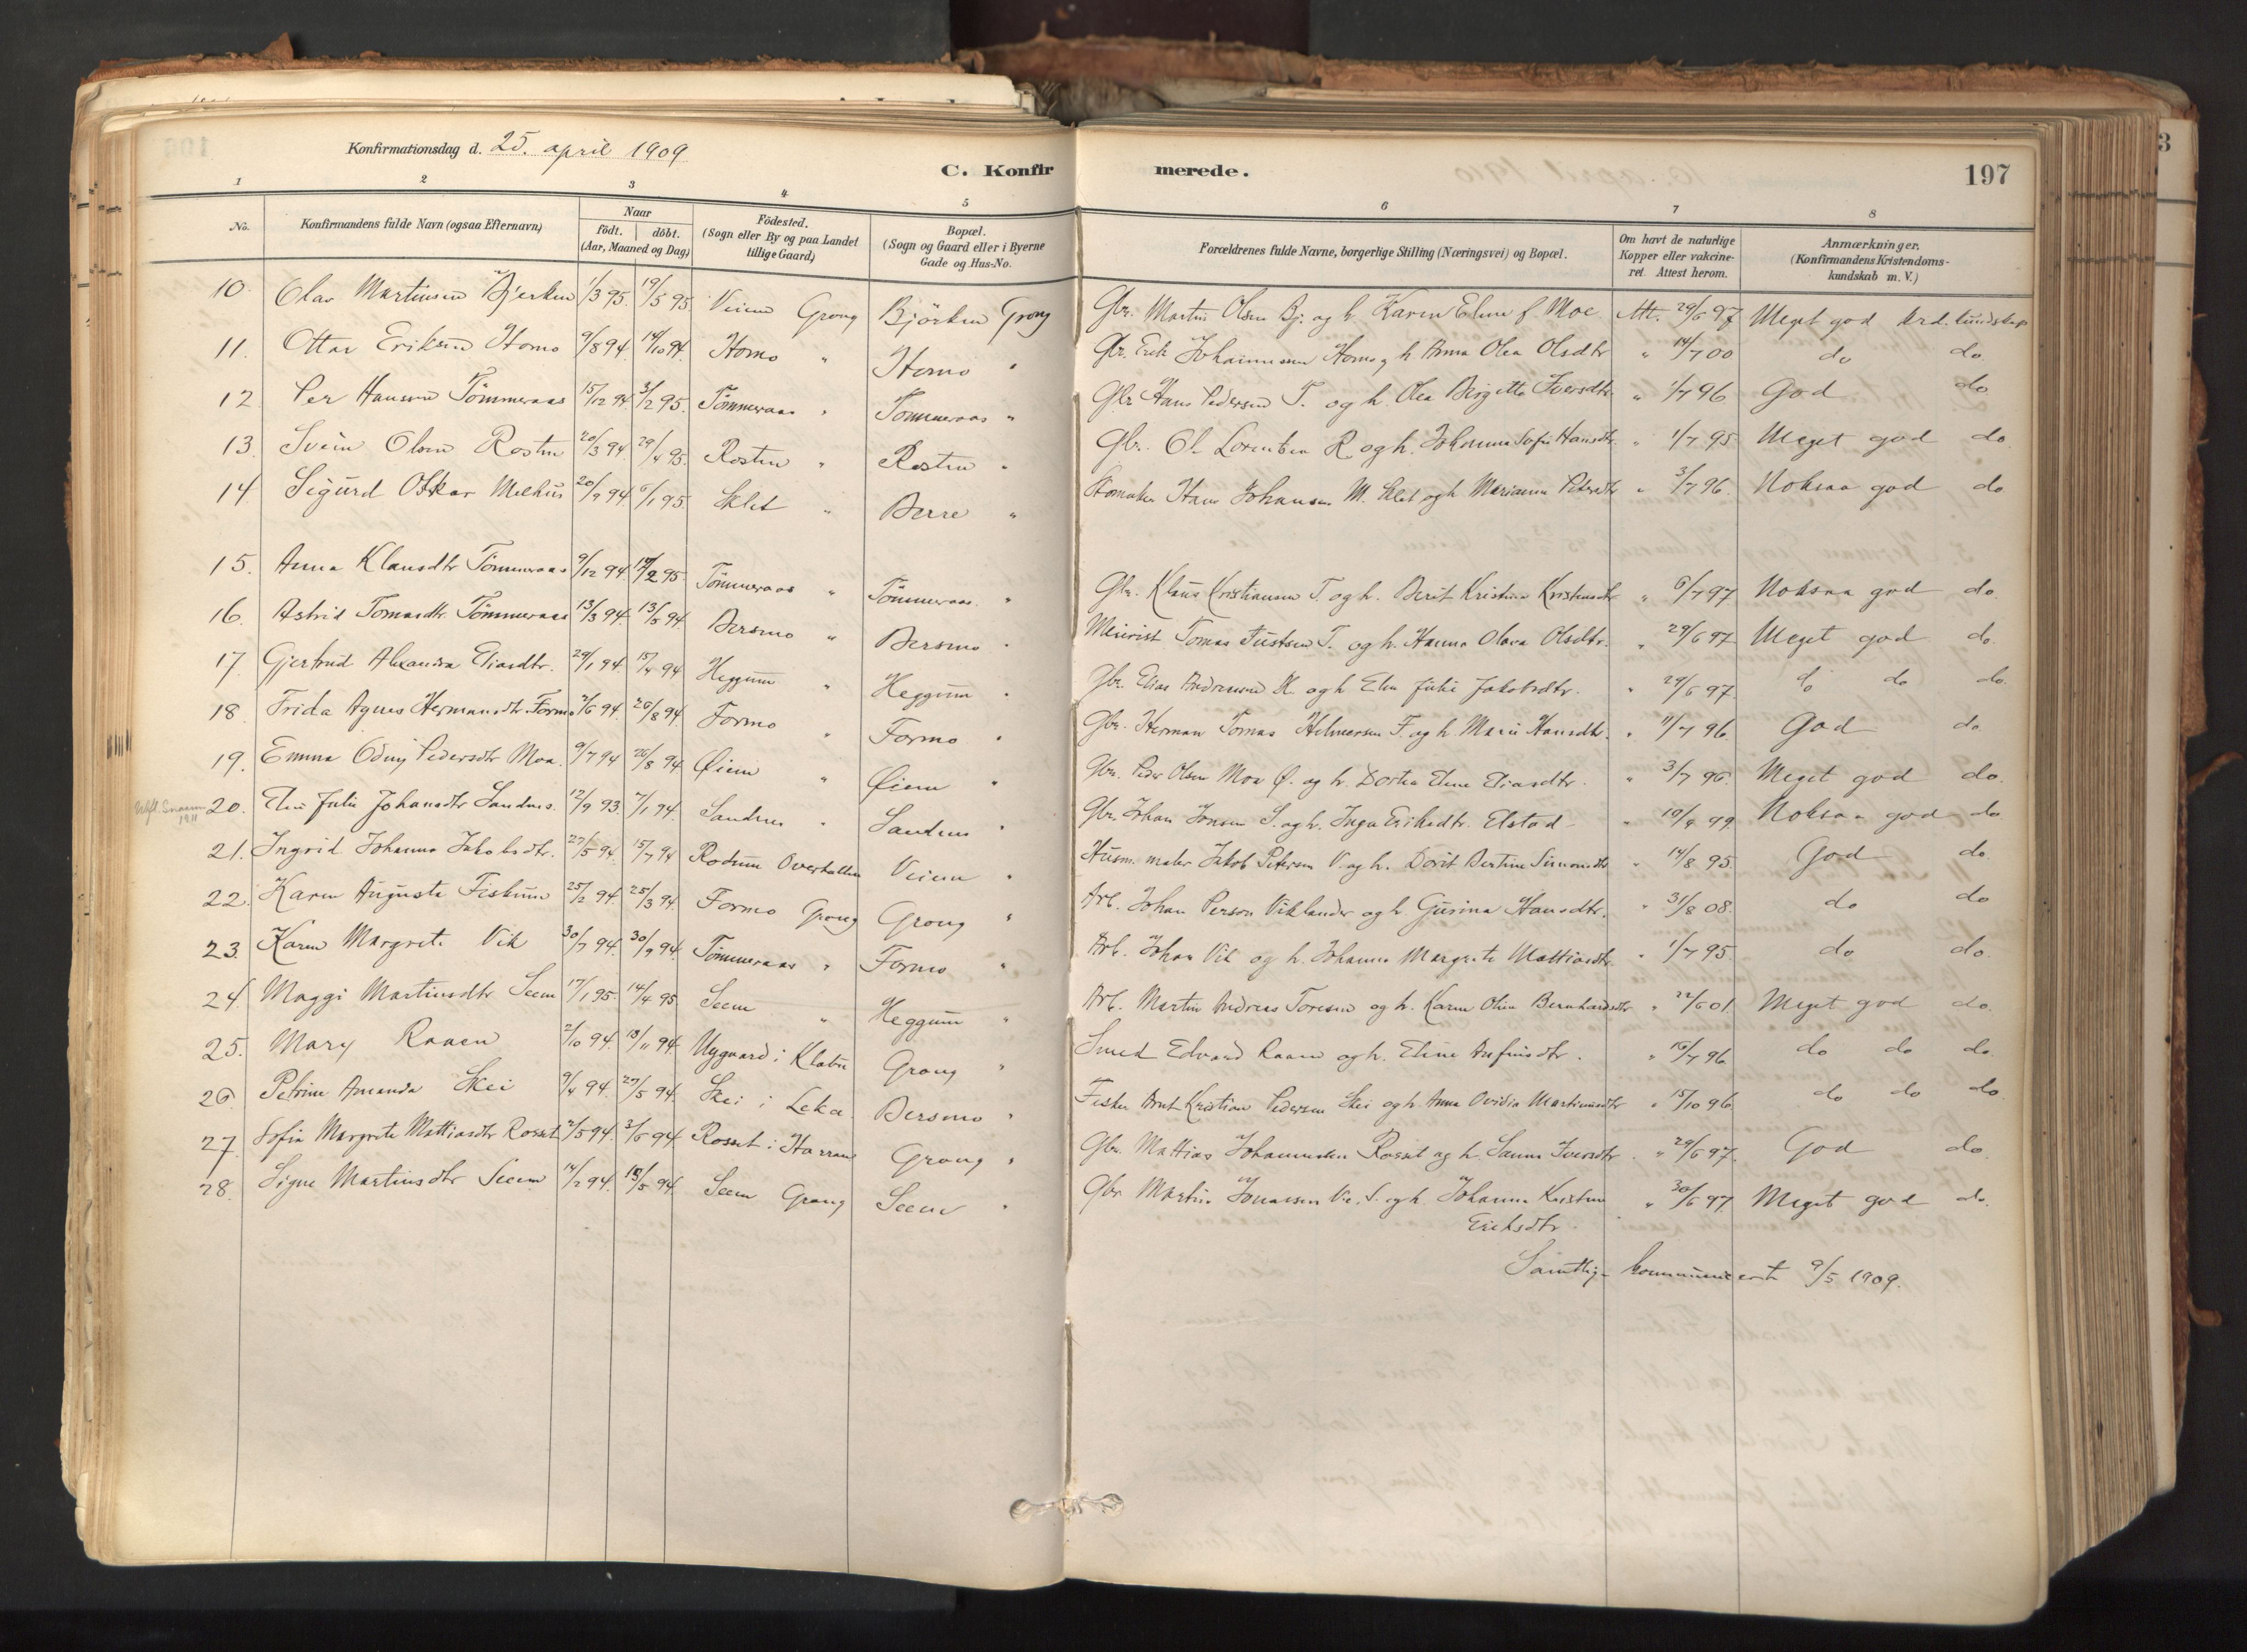 Konfirmationsdag d. 25. april 1909
C. Konfirmerede.
197
1 2 3 4 5 6 7 8
No. Konfirmandens fulde Navn (ogsaa Efternavn) Naar födt. döbt. (Aar, Maaned og Dag) Födested. (Sogn eller By og paa Landet tillige Gaard) Bopæl. (Sogn og Gaard eller i Byerne Gade og Hus-No. Forældrenes fulde Navne, borgerlige Stilling (Næringsvei) og Bopæl. Om havt de naturlige Kopper eller vakcineret. Attest herom. Anmærkninger. (Konfirmandens Kristendomskundskab m. V.)
10. Olav Martinsen Bjerken 1/3 95. 19/5 95. Veiem Grong Björken Grong Gbr. Martin Olsen Bj. og h. Karen Eline f. Moe Att. 29/6 97 Meget god krd. kundskap
11. Ottar Eriksen Homo 9/8 94. 14/10 94. Homo " Homo " Gbr. Erik Johannessen Homo og h. Anna Olea Olsdtr " 14/7 00 do do.
12 Per Hansen Tömmeraas 15/12 94. 3/2 95. Tömmeraas " Tömmeraas " Gbr Hans Pedersen T. og h. Olea Birgitte Iversdtr. " 1/7 96. God do
13. Svein Olsen Rosten 20/3 94. 29/4 95. Rosten " Rosten " Gbr. Ol Lorentsen R. og h. Johanna Sofie Hansdtr. " 1/7 95 Meget god do.
14. Sigurd Oskar Melhus 20/9 94. 6/1 95. Sklet " Berre " Skomaker Hans Johansen M. Sklet og h. Marianna Petersdtr " 3/7 96. Noksaa god do
15. Anna Klausdtr Tömmeraas 9/12 94. 2 95. Tömmeraas " Tömmeraas. " Gbr. Klaus Kristiansen T. og h. Berit Kristine Kristensdtr " 6/7 97 Noksaa god do.
16. Astrid Tomasdtr. Tömmeraas 13/3 94. 13/5 94 Bersmo " Bersmo " Meierist Tomas Justsen T. og h. Hanna Olava Olsdtr. " 29/6 97 Meget god do.
17. Gjertrud Alexandra Eliasdtr. 29/1 94. 15/4 94 Heggum " Heggum " Gbr. Elias Andreassen H. og h. Elen Julie Jakobsdtr. " 29/6 97. do do do.
18. Frida Agnes Hermansdtr. Formo 2/6 94. 26/8 94. Formo " Formo " Gbr. Herman Tomas Hilmarsen F. og h. Marie Hansdtr. " 11/7 96. God do
19. Emma Odny Pedersdtr Moa. 9/7 94 26/8 94. Øiem " Øiem " Gbr. Peder Olsen Moa Ø. og h. Dortea Eline Eliasdtr. " 3/7 96. Meget god do.
1911 20. Elen Julie Johansdtr Sandnes. 12/9 93. 7/1 94. Sandnes " Sandnes " Gbr. Johan Jonsen S. og h. Inga Eriksdtr. Elstad " 10/4 99. Noksaa god do.
21. Ingrid Johanna Jakobsdtr. 27/5 94. 15/7 94 Rodum Overhallen Veiem " Husm. maler Jakob Petersen V. og h. Dorit Bertine Simonsdtr " 14/8 95. God do
22. Karen Auguste Fiskum 25/2 94. 25/3 94. Formo Grong Grong " Arb. Johan Person Viklander og h. Gusina Hansdtr. " 31/8 08. do do
23. Karen Margrete Vik 30/7 94. 30/9 94. Tömmeraas " Formo " Arb. Johan Vik og h. Johanna Margrete Mattiasdtr. " 1/7 95. do do.
24. Maggi Martinsdtr Seem 17/1 95. 14/4 95. Seem " Heggum " Arb. Martin Andreas Toresen og h. Karen Oline Bernhardsdtr " 22/6 01. Meget god do.
25. Mary Raaen 2/10 94. 18/11 94. Nygaard i Klæbu Grong " Smed Edvard Raaen og h. Eline Arfinsdtr. " 16/7 96 do do do.
26. Petrine Amanda Skei 9/4 94. 27/5 94. Skei i Leka Bersmo " Fisker Arnt Kristian Pedersen Skei og h. Anna Ovidia Martinusdtr " 15/10 96. do do do.
27. Sofia Margrete Mattiasdtr Rosset 2/5 94. 3/6 94. Rosset i Harran Grong " Gbr. Mattias Johannessen Rosset og h. Sanna Iversdtr. " 29/6 97. God do.
28. Signe Martinsdtr Seem 14/2 94. 13/5 94. Seem Grong Seem " Gbr. Martin Jonassen V. S. og h. Johanna Kristine " 30/6 97. Meget god do.
Eriksdtr.
Samtlige kommunicerte 9/5 1909.